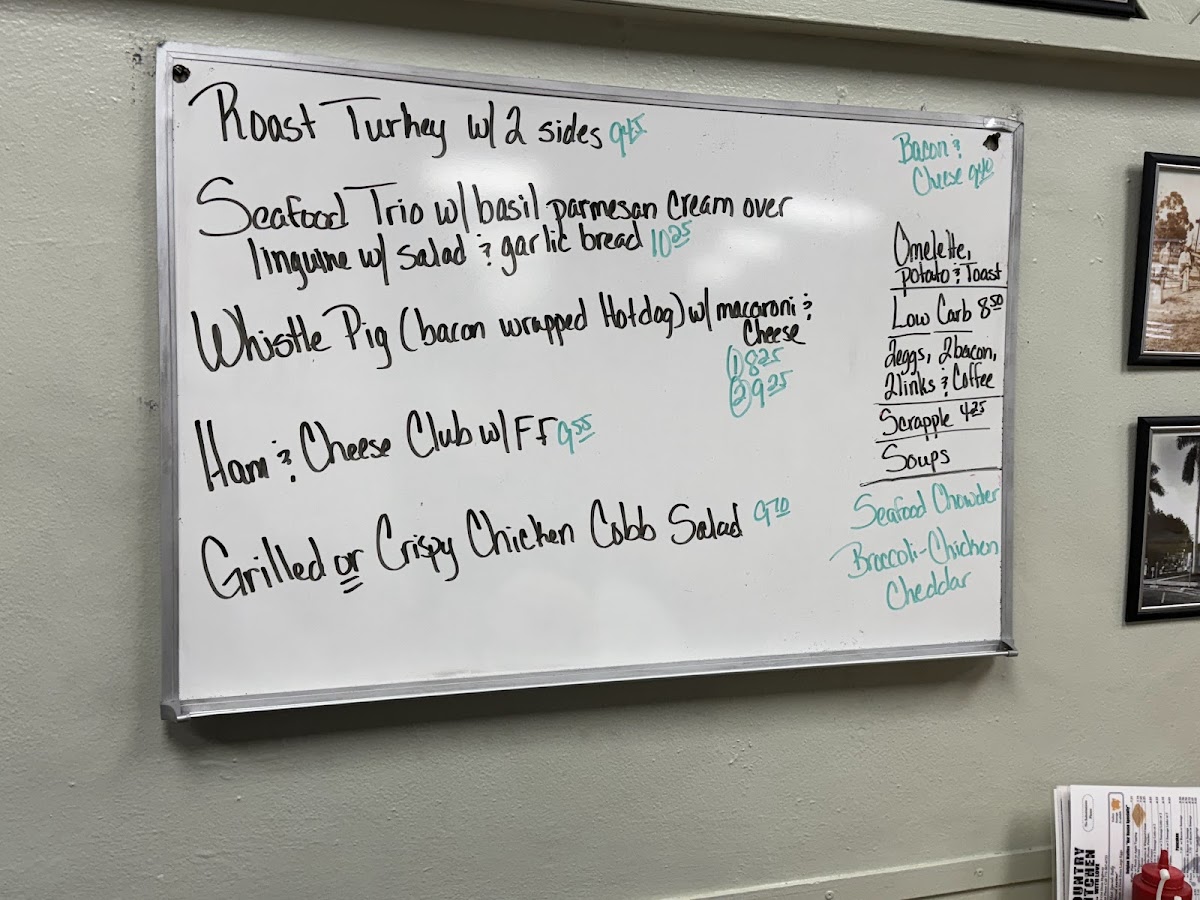 Roast Turkey w/ 2 sides 9.45
Seafood Trio w/ basil parmesan cream over
linguine w/ salad & garlic bread 10.25
Whistle Pig (bacon wrapped Hotdog) w/ macaroni &
Cheese
(1) 8.25
(2) 9.25
Ham & Cheese Club w/ FF 9.55
Grilled or Crispy Chicken Cobb Salad 9.70
Bacon &
Cheese 9.40
Omelette,
potato & Toast
Low Carb 8.50
2eggs, 2bacon,
2links & Coffee
Scrapple 4.25
Soups
Seafood Chowder
Broccoli-Chicken
Cheddar